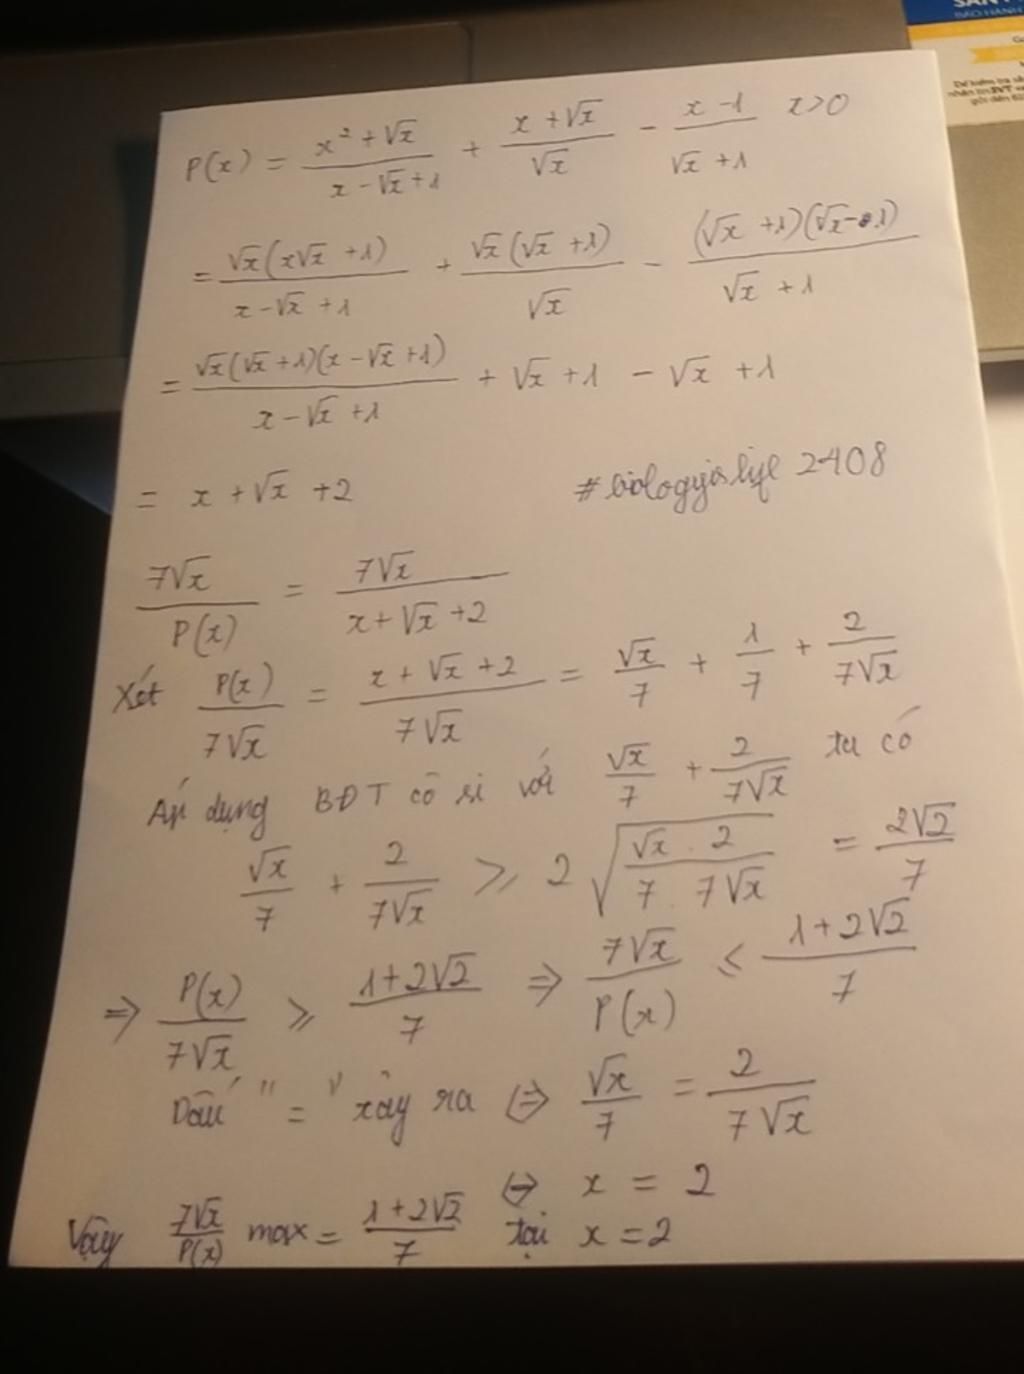 SAN
BẢO HÀNH
P(x) = \frac{x² + √x}{x - √x + 1} + \frac{x + √x}{√x} - \frac{x - 1}{√x + 1} x>0
= \frac{√x(x√x + 1)}{x - √x + 1} + \frac{√x(√x + 1)}{√x} - \frac{(√x + 1)(√x - 1)}{√x + 1}
= \frac{√x(√x + 1)(x - √x + 1)}{x - √x + 1} + √x + 1 - √x + 1
= x + √x + 2 #biologyislife 2408
\frac{7√x}{P(x)} = \frac{7√x}{x + √x + 2}
Xét \frac{P(x)}{7√x} = \frac{x + √x + 2}{7√x} = \frac{√x}{7} + \frac{1}{7} + \frac{2}{7√x}
Áp dụng BĐT cô si với \frac{√x}{7} + \frac{2}{7√x} ta có
\frac{√x}{7} + \frac{2}{7√x} ≥ 2\sqrt{\frac{√x . 2}{7 . 7√x}} = \frac{2√2}{7}
⇒ \frac{P(x)}{7√x} ≥ \frac{1 + 2√2}{7} ⇒ \frac{7√x}{P(x)} ≤ \frac{1 + 2√2}{7}
Dấu "=" xảy ra ⇔ \frac{√x}{7} = \frac{2}{7√x}
⇔ x = 2
Vậy \frac{7√x}{P(x)} max = \frac{1 + 2√2}{7} tại x = 2